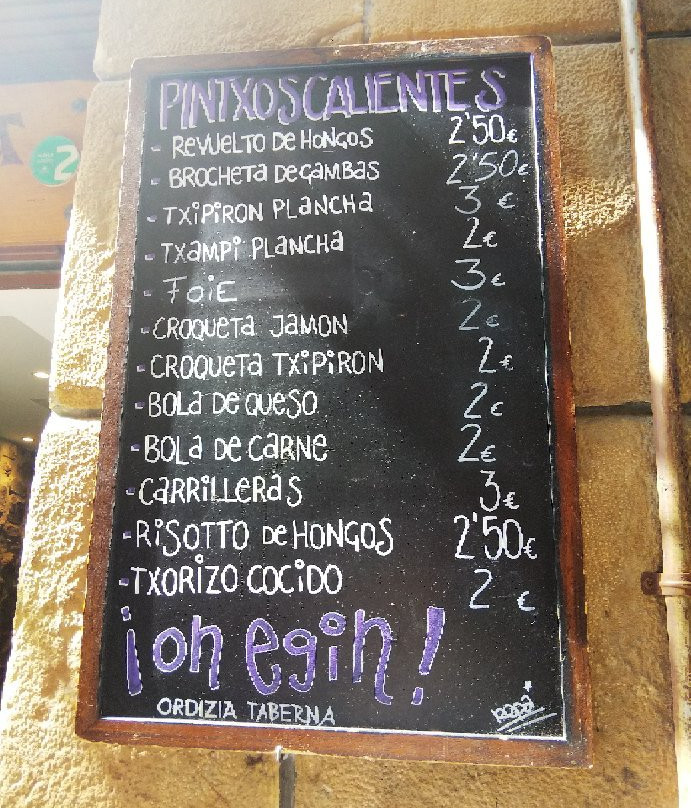 PINTXOS CALIENTES
- REVUELTO DE HONGOS 2'50€
- BROCHETA DE GAMBAS 2'50€
- TXiPiRON PLANCHA 3 €
- TXAMPI PLANCHA 2€
- FOiE 3€
- CROQUETA JAMON 2€
- CROQUETA TXiPiRON 2€
- BOLA DE QUESO 2€
- BOLA DE CARNE 2€
- CARRiLLERAS 3€
- RiSOTTO DE HONGOS 2'50€
- TXORIZO COCiDO 2 €
¡on egin!
ORDIZIA TABERNA
2